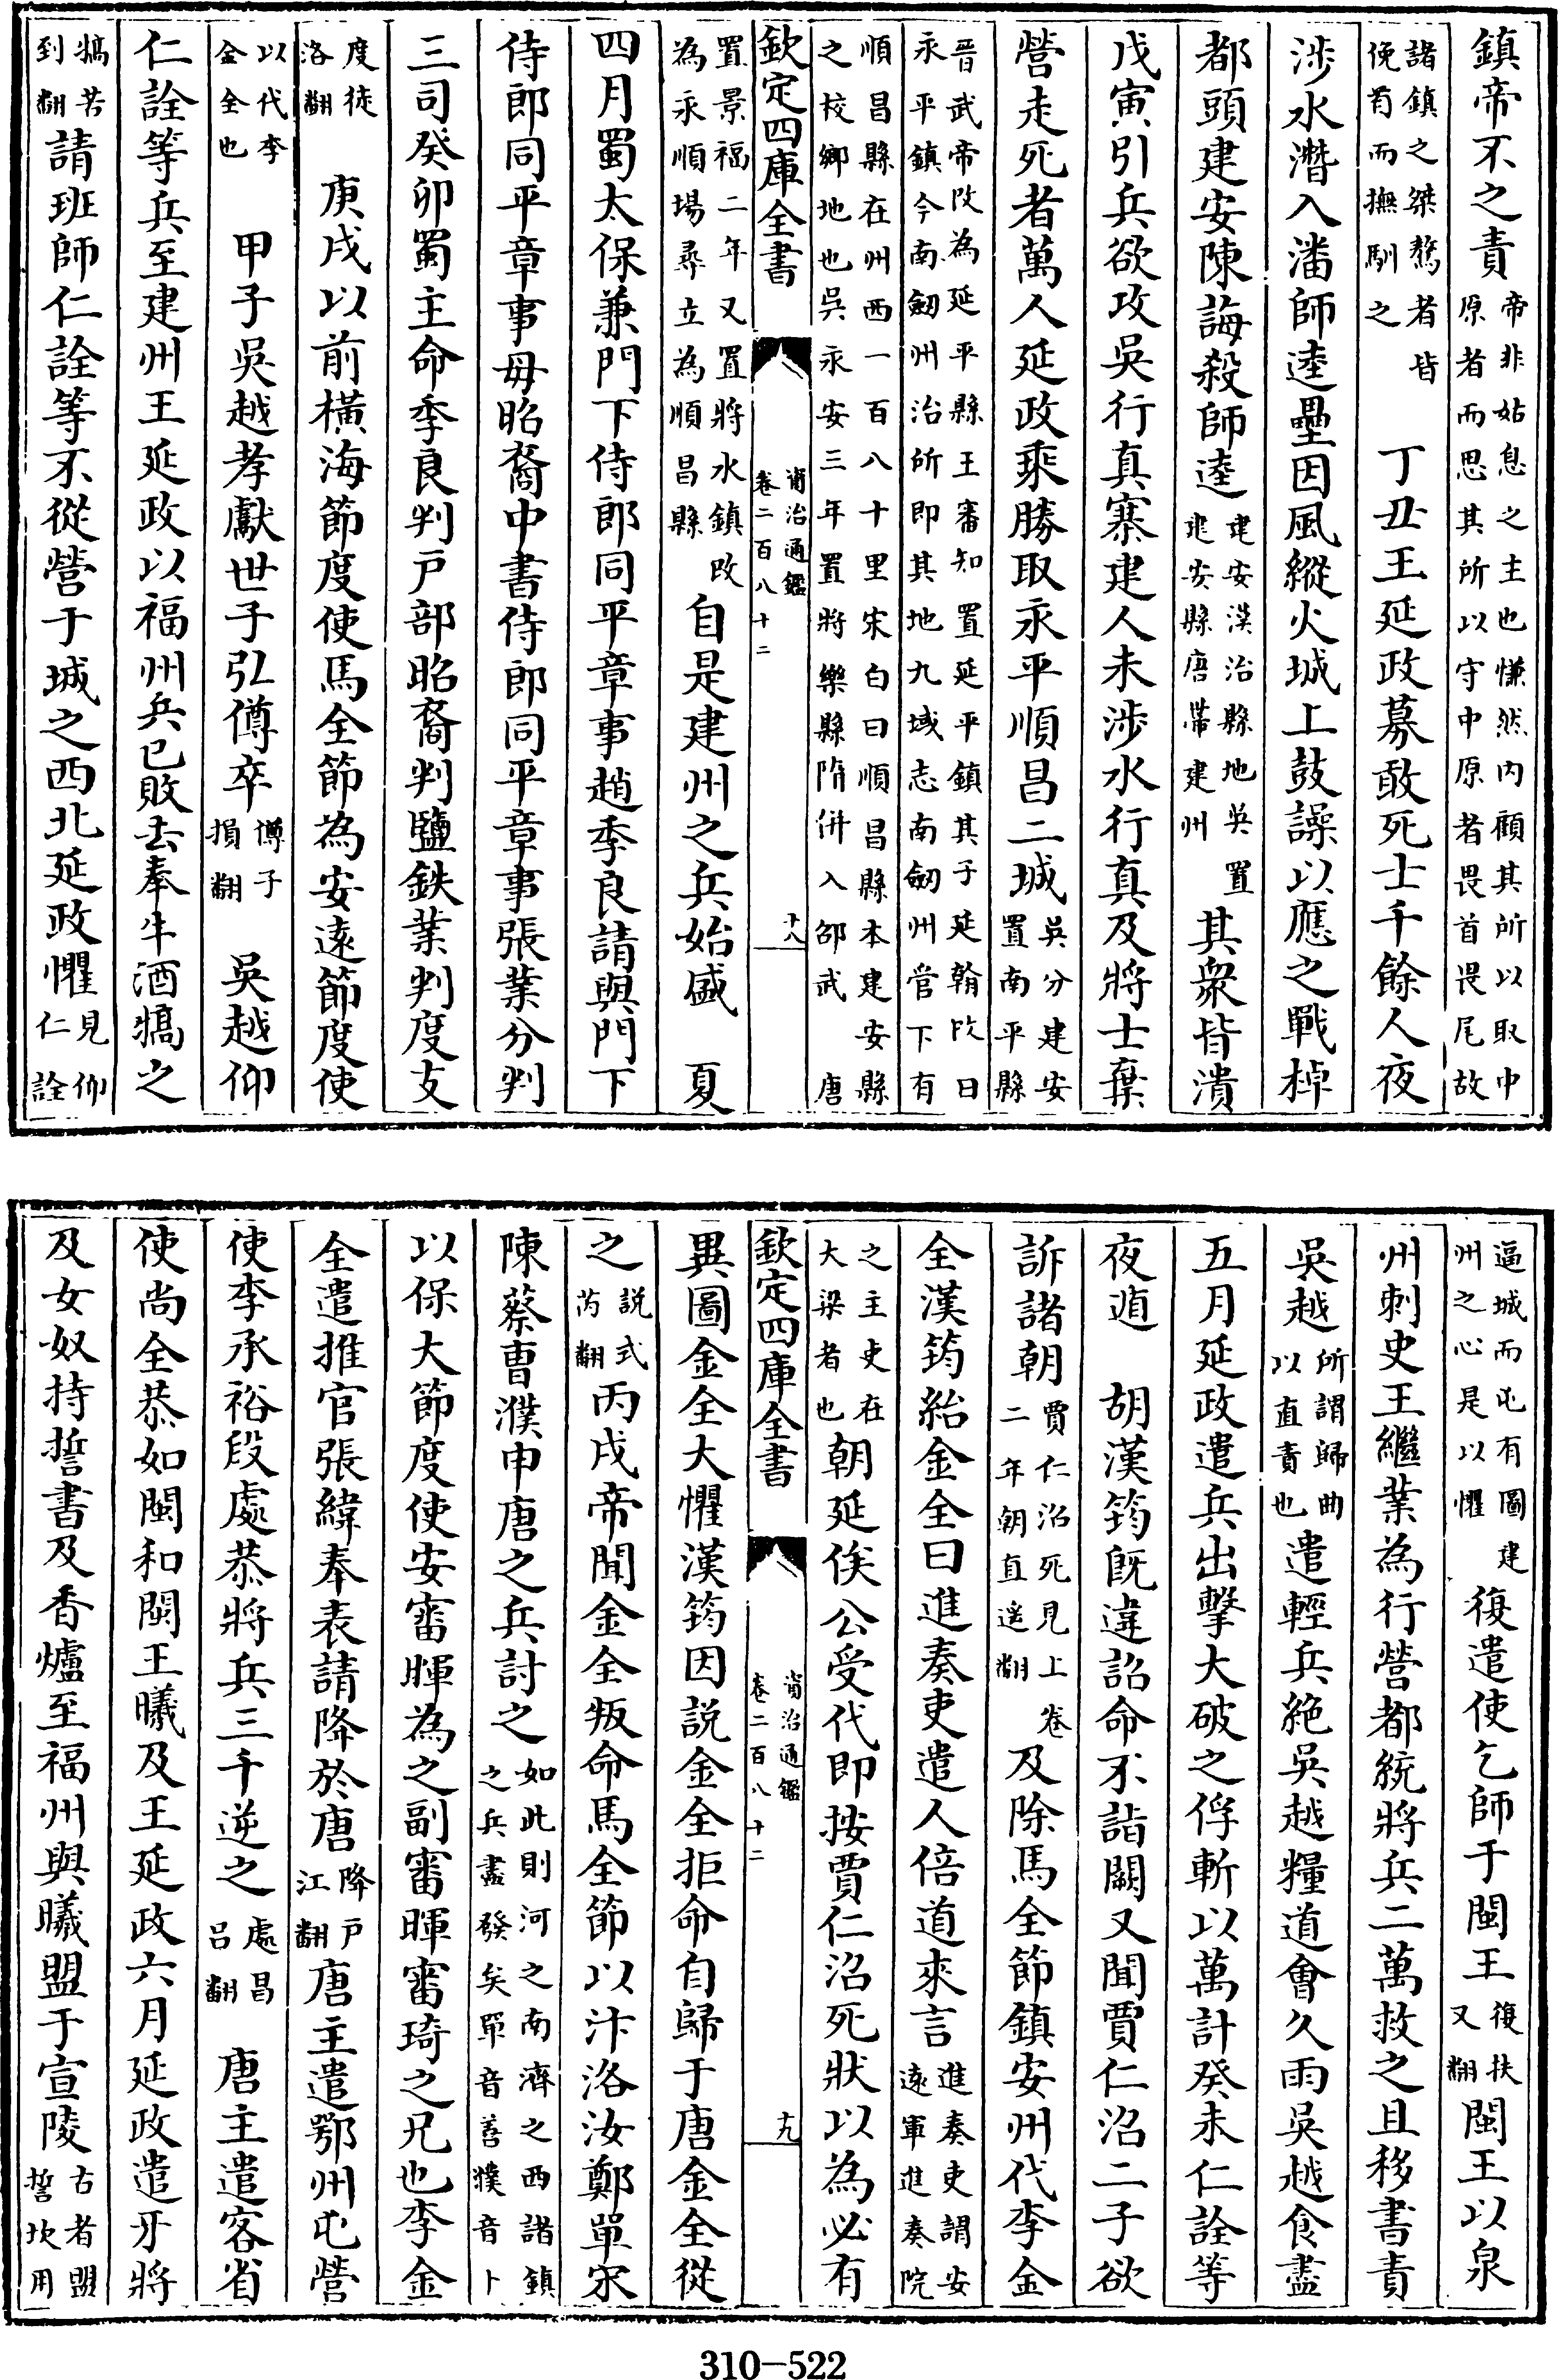 鎮帝不之責帝非姑息之主也慊然内顧其所以取中原者而思其所以守中原者畏首畏尾故
諸鎮之桀驁者皆俛首而撫馴之　丁丑王延政募敢死士千餘人夜
涉水潛入潘師逵壘因風縱火城上鼓譟以應之戰棹
都頭建安陳誨殺師逵建安漢冶縣地吳置建安縣唐帶建州其衆皆潰
戊寅引兵欲攻吳行真寨建人未涉水行真及將士棄
營走死者萬人延政乘勝取永平順昌二城吳分建安置南平縣
晉武帝改為延平縣王審知置延平鎮其子延翰改曰永平鎮今南劒州治所即其地九域志南劒州管下有
順昌縣在州西一百八十里宋白曰順昌縣本建安縣之校鄉地也吳永安三年置將樂縣隋併入邵武唐
欽定四庫全書　資治通鑑卷二百八十二　十八
置景福二年又置將水鎮改為永順場尋立為順昌縣自是建州之兵始盛　夏
四月蜀太保兼門下侍郎同平章事趙季良請與門下
侍郎同平章事毋昭裔中書侍郎同平章事張業分判
三司癸卯蜀主命季良判戸部昭裔判鹽鉄業判度支
度徒洛翻　庚戌以前橫海節度使馬全節為安遠節度使
以代李金全也　甲子吳越孝獻世子弘僔卒僔子損翻　吳越仰
仁詮等兵至建州王延政以福州兵已敗去奉牛酒犒之
犒苦到翻請班師仁詮等不從營于城之西北延政懼見仰仁詮
逼城而屯有圖建州之心是以懼復遣使乞師于閩王復扶又翻閩王以泉
州刺史王繼業為行營都統將兵二萬救之且移書責
吳越所謂歸曲以直責也遣輕兵絶吳越糧道會久雨吳越食盡
五月延政遣兵出擊大破之俘斬以萬計癸未仁詮等
夜遁　胡漢筠旣違詔命不詣闕又聞賈仁沼二子欲
訴諸朝賈仁沼死見上卷二年朝直遥翻及除馬全節鎮安州代李金
全漢筠紿金全曰進奏吏遣人倍道來言進奏吏謂安遠軍進奏院
之主吏在大梁者也朝廷俟公受代即按賈仁沼死狀以為必有
欽定四庫全書　資治通鑑卷二百八十二　十九
異圖金全大懼漢筠因説金全拒命自歸于唐金全從
之説式芮翻丙戌帝聞金全叛命馬全節以汴洛汝鄭單宋
陳蔡曹濮申唐之兵討之如此則河之南濟之西諸鎮之兵盡發矣單音善濮音卜
以保大節度使安審暉為之副審暉審琦之兄也李金
全遣推官張緯奉表請降於唐降戸江翻唐主遣鄂州屯營
使李承裕段處恭將兵三千逆之處昌呂翻　唐主遣客省
使尚全恭如閩和閩王曦及王延政六月延政遣牙將
及女奴持誓書及香爐至福州與曦盟于宣陵古者盟誓坎用
310-522